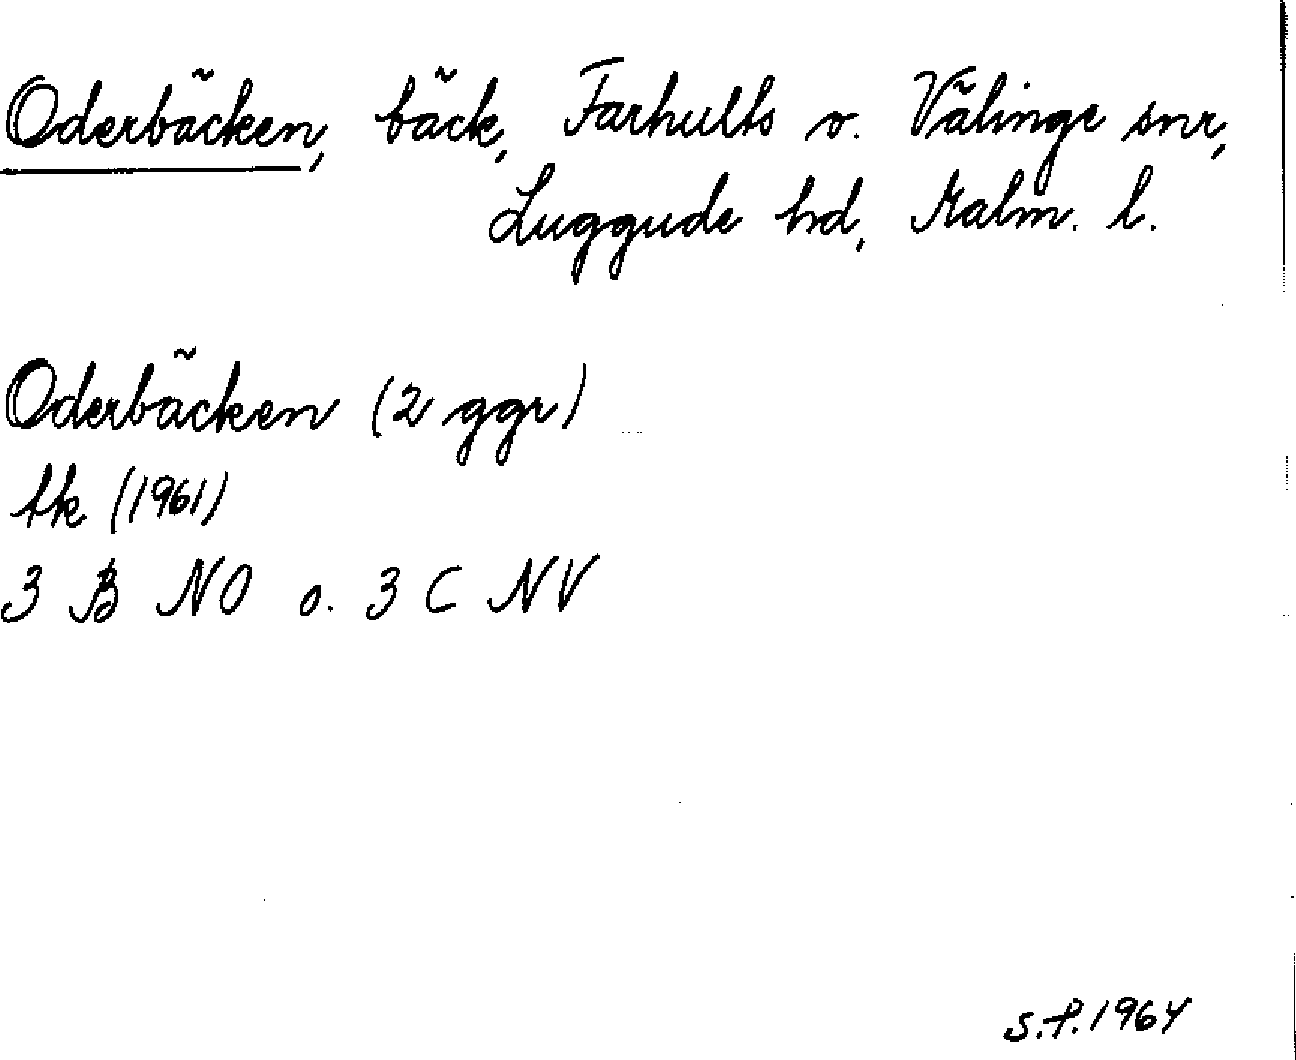 Oderbäcken, bäck, Farhults o. Välinge snr,
Luggude hd, Malm. l.
Oderbäcken (2 ggr)
tk (1961)
3 B NO o. 3 C NV
S.F. 1964